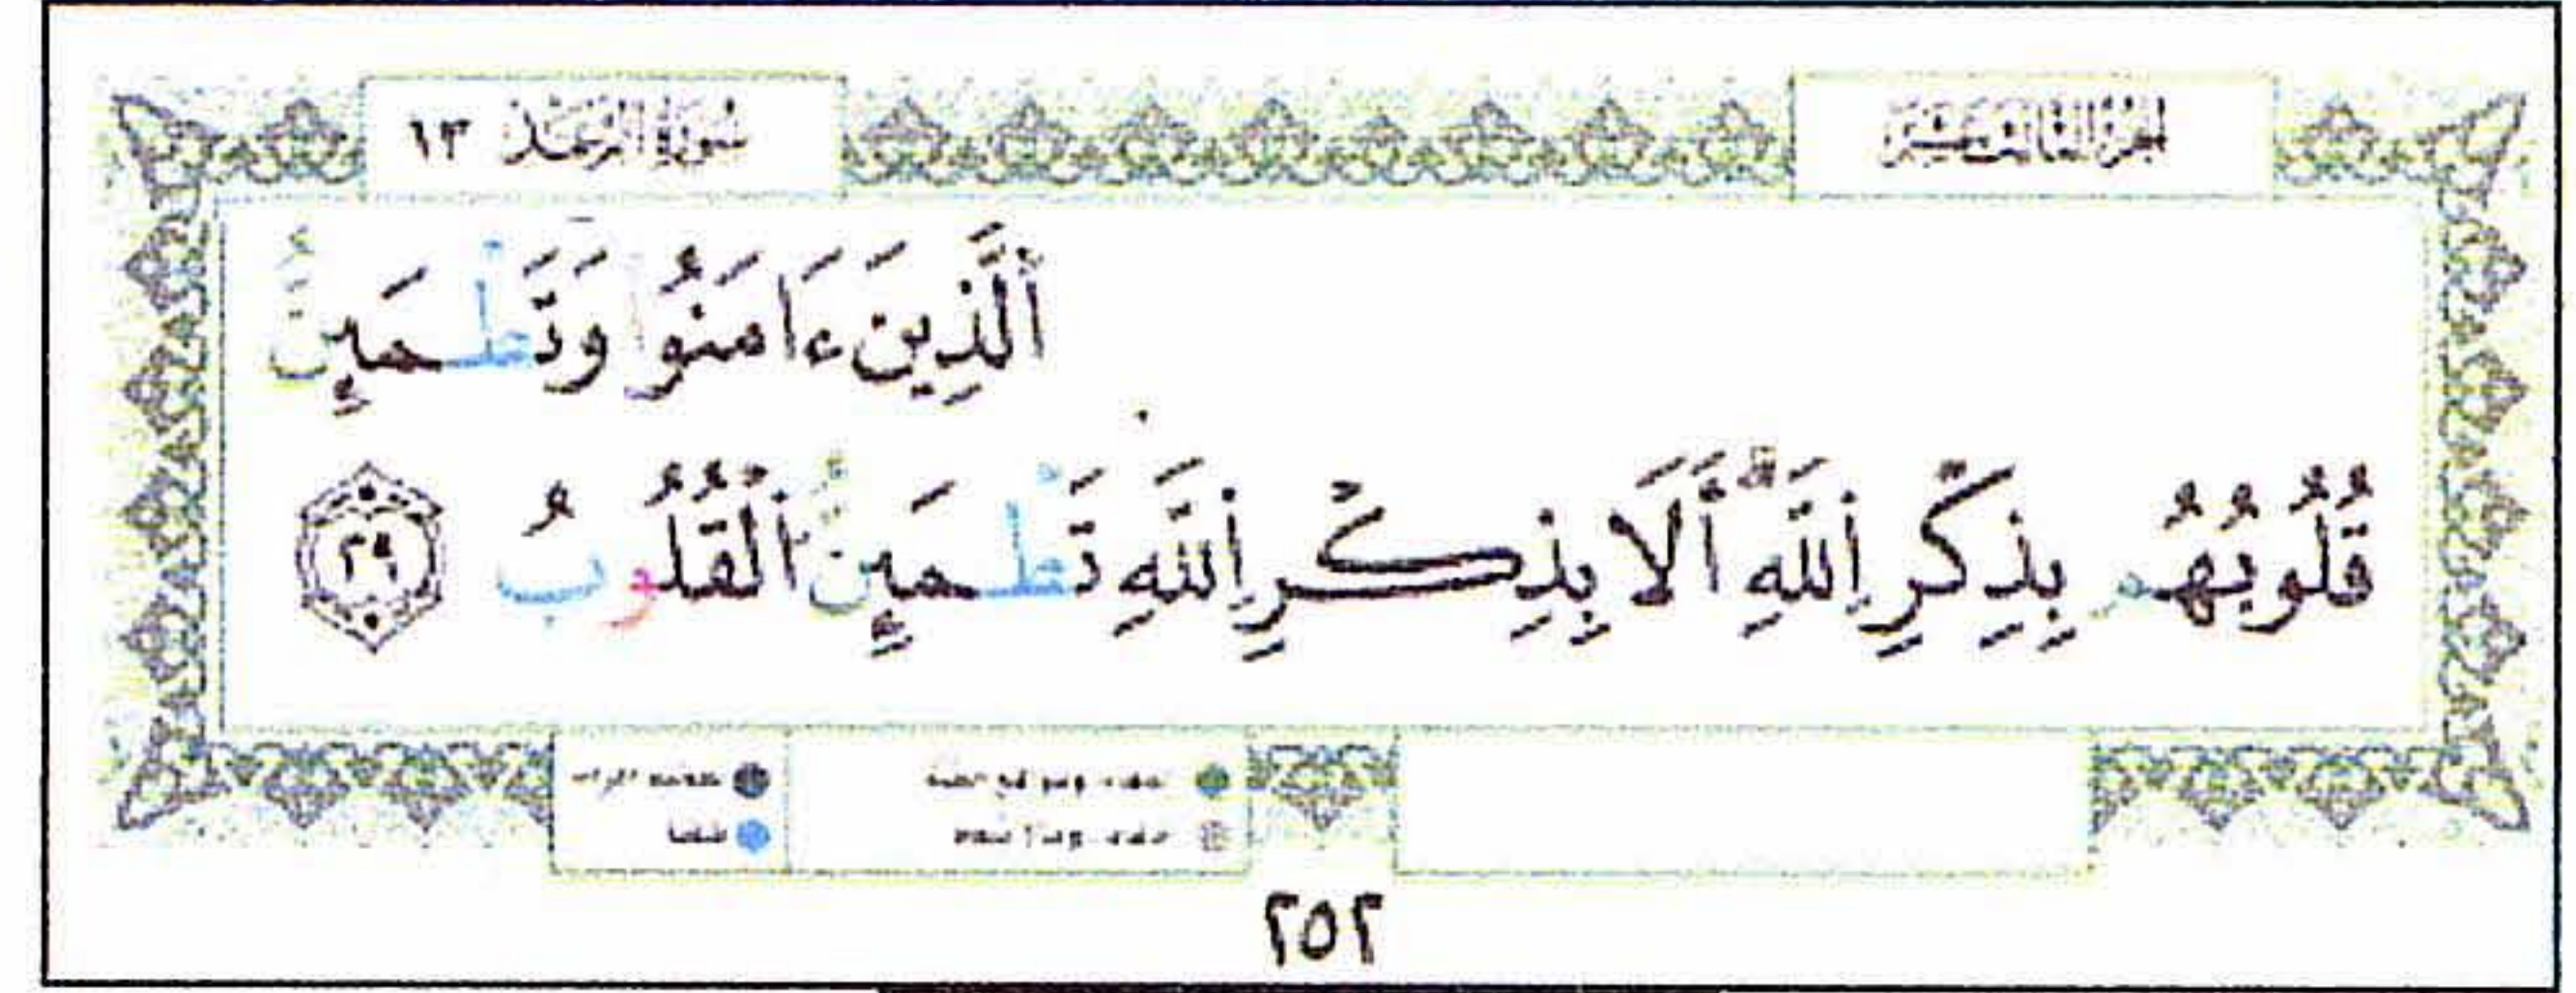 الجزء الثالث عشر
سورة الرعد ١٣
ٱلَّذِينَ ءَامَنُوا وَتَطْمَئِنُّ
قُلُوبُهُم بِذِكْرِ ٱللَّهِ أَلَا بِذِكْرِ ٱللَّهِ تَطْمَئِنُّ ٱلْقُلُوبُ ٢٩
٢٥٢